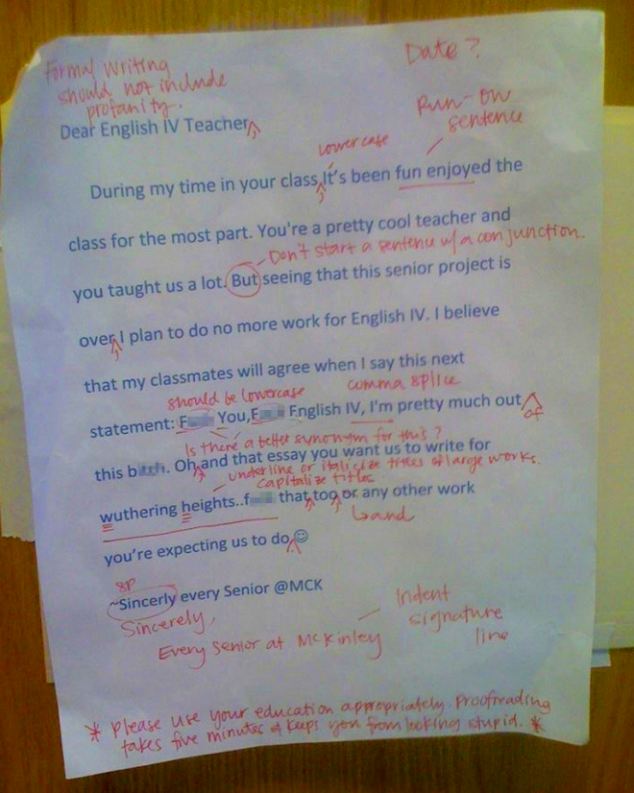 Formal writing
should not include
profanity.
Date?
Dear English IV Teacher,
Run-on
sentence
lowercase
During my time in your class, It's been fun enjoyed the
class for the most part. You're a pretty cool teacher and
Don't start a sentence w/ a conjunction.
you taught us a lot. But seeing that this senior project is
over, I plan to do no more work for English IV. I believe
that my classmates will agree when I say this next
should be lowercase
comma splice
statement: F You,F English IV, I'm pretty much out
of
Is there a better synonym for this?
this b tch. Oh, and that essay you want us to write for
underline or italicize titles of large works.
capitalize titles
wuthering heights..f that, too, or any other work
and
you're expecting us to do. ☺
sp
~Sincerly every Senior @MCK
Sincerely,
Every senior at McKinley
Indent
signature
line
* Please use your education appropriately. Proofreading
takes five minutes & keeps you from looking stupid. *